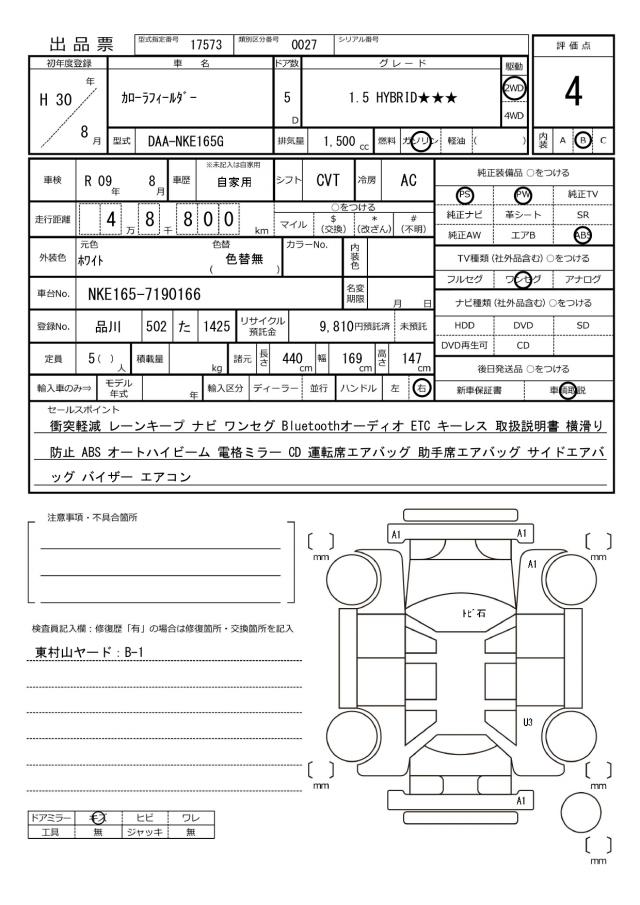 出品票 型式指定番号 17573 類別区分番号 0027 シリアル番号
評価点
4
内装 A B C
初年度登録 車名 ドア数 グレード 駆動
H 30 年 / 8 月 ｶﾛｰﾗﾌｨｰﾙﾀﾞｰ 5 D 1.5 HYBRID★★★ 2WD 4WD
型式 DAA-NKE165G 排気量 1,500 cc 燃料 ガソリン 軽油 ( )
車検 R 09 年 8 月 車歴 ※未記入は自家用 自家用 シフト CVT 冷房 AC
走行距離 4 万 8 千 8 0 0 km ○をつける マイル $ (交換) * (改ざん) # (不明)
外装色 元色 ﾎﾜｲﾄ 色替 ( 色替無 ) カラーNo. 内装色
車台No. NKE165-7190166 名変期限 月 日
登録No. 品川 502 た 1425 リサイクル預託金 9,810円預託済 未預託
定員 5 ( ) 人 積載量 kg 諸元 長さ 440 cm 幅 169 cm 高さ 147 cm
輸入車のみ⇒ モデル年式 年 輸入区分 ディーラー 並行 ハンドル 左 右
純正装備品 ○をつける
PS PW 純正TV
純正ナビ 革シート SR
純正AW エアB ABS
TV種類 (社外品含む) ○をつける
フルセグ ワンセグ アナログ
ナビ種類 (社外品含む) ○をつける
HDD DVD SD
DVD再生可 CD
後日発送品 ○をつける
新車保証書 車輌取説
セールスポイント
衝突軽減 レーンキープ ナビ ワンセグ Bluetoothオーディオ ETC キーレス 取扱説明書 横滑り
防止 ABS オートハイビーム 電格ミラー CD 運転席エアバッグ 助手席エアバッグ サイドエアバ
ッグ バイザー エアコン
注意事項・不具合箇所
検査員記入欄：修復歴「有」の場合は修復箇所・交換箇所を記入
東村山ヤード：B-1
ドアミラー キズ ヒビ ワレ
工具 無 ジャッキ 無
A1 A1
[ ] mm [ ] mm
A1
ﾄﾋﾞ石
U3
[ ] mm [ ] mm
A1
[ ] mm